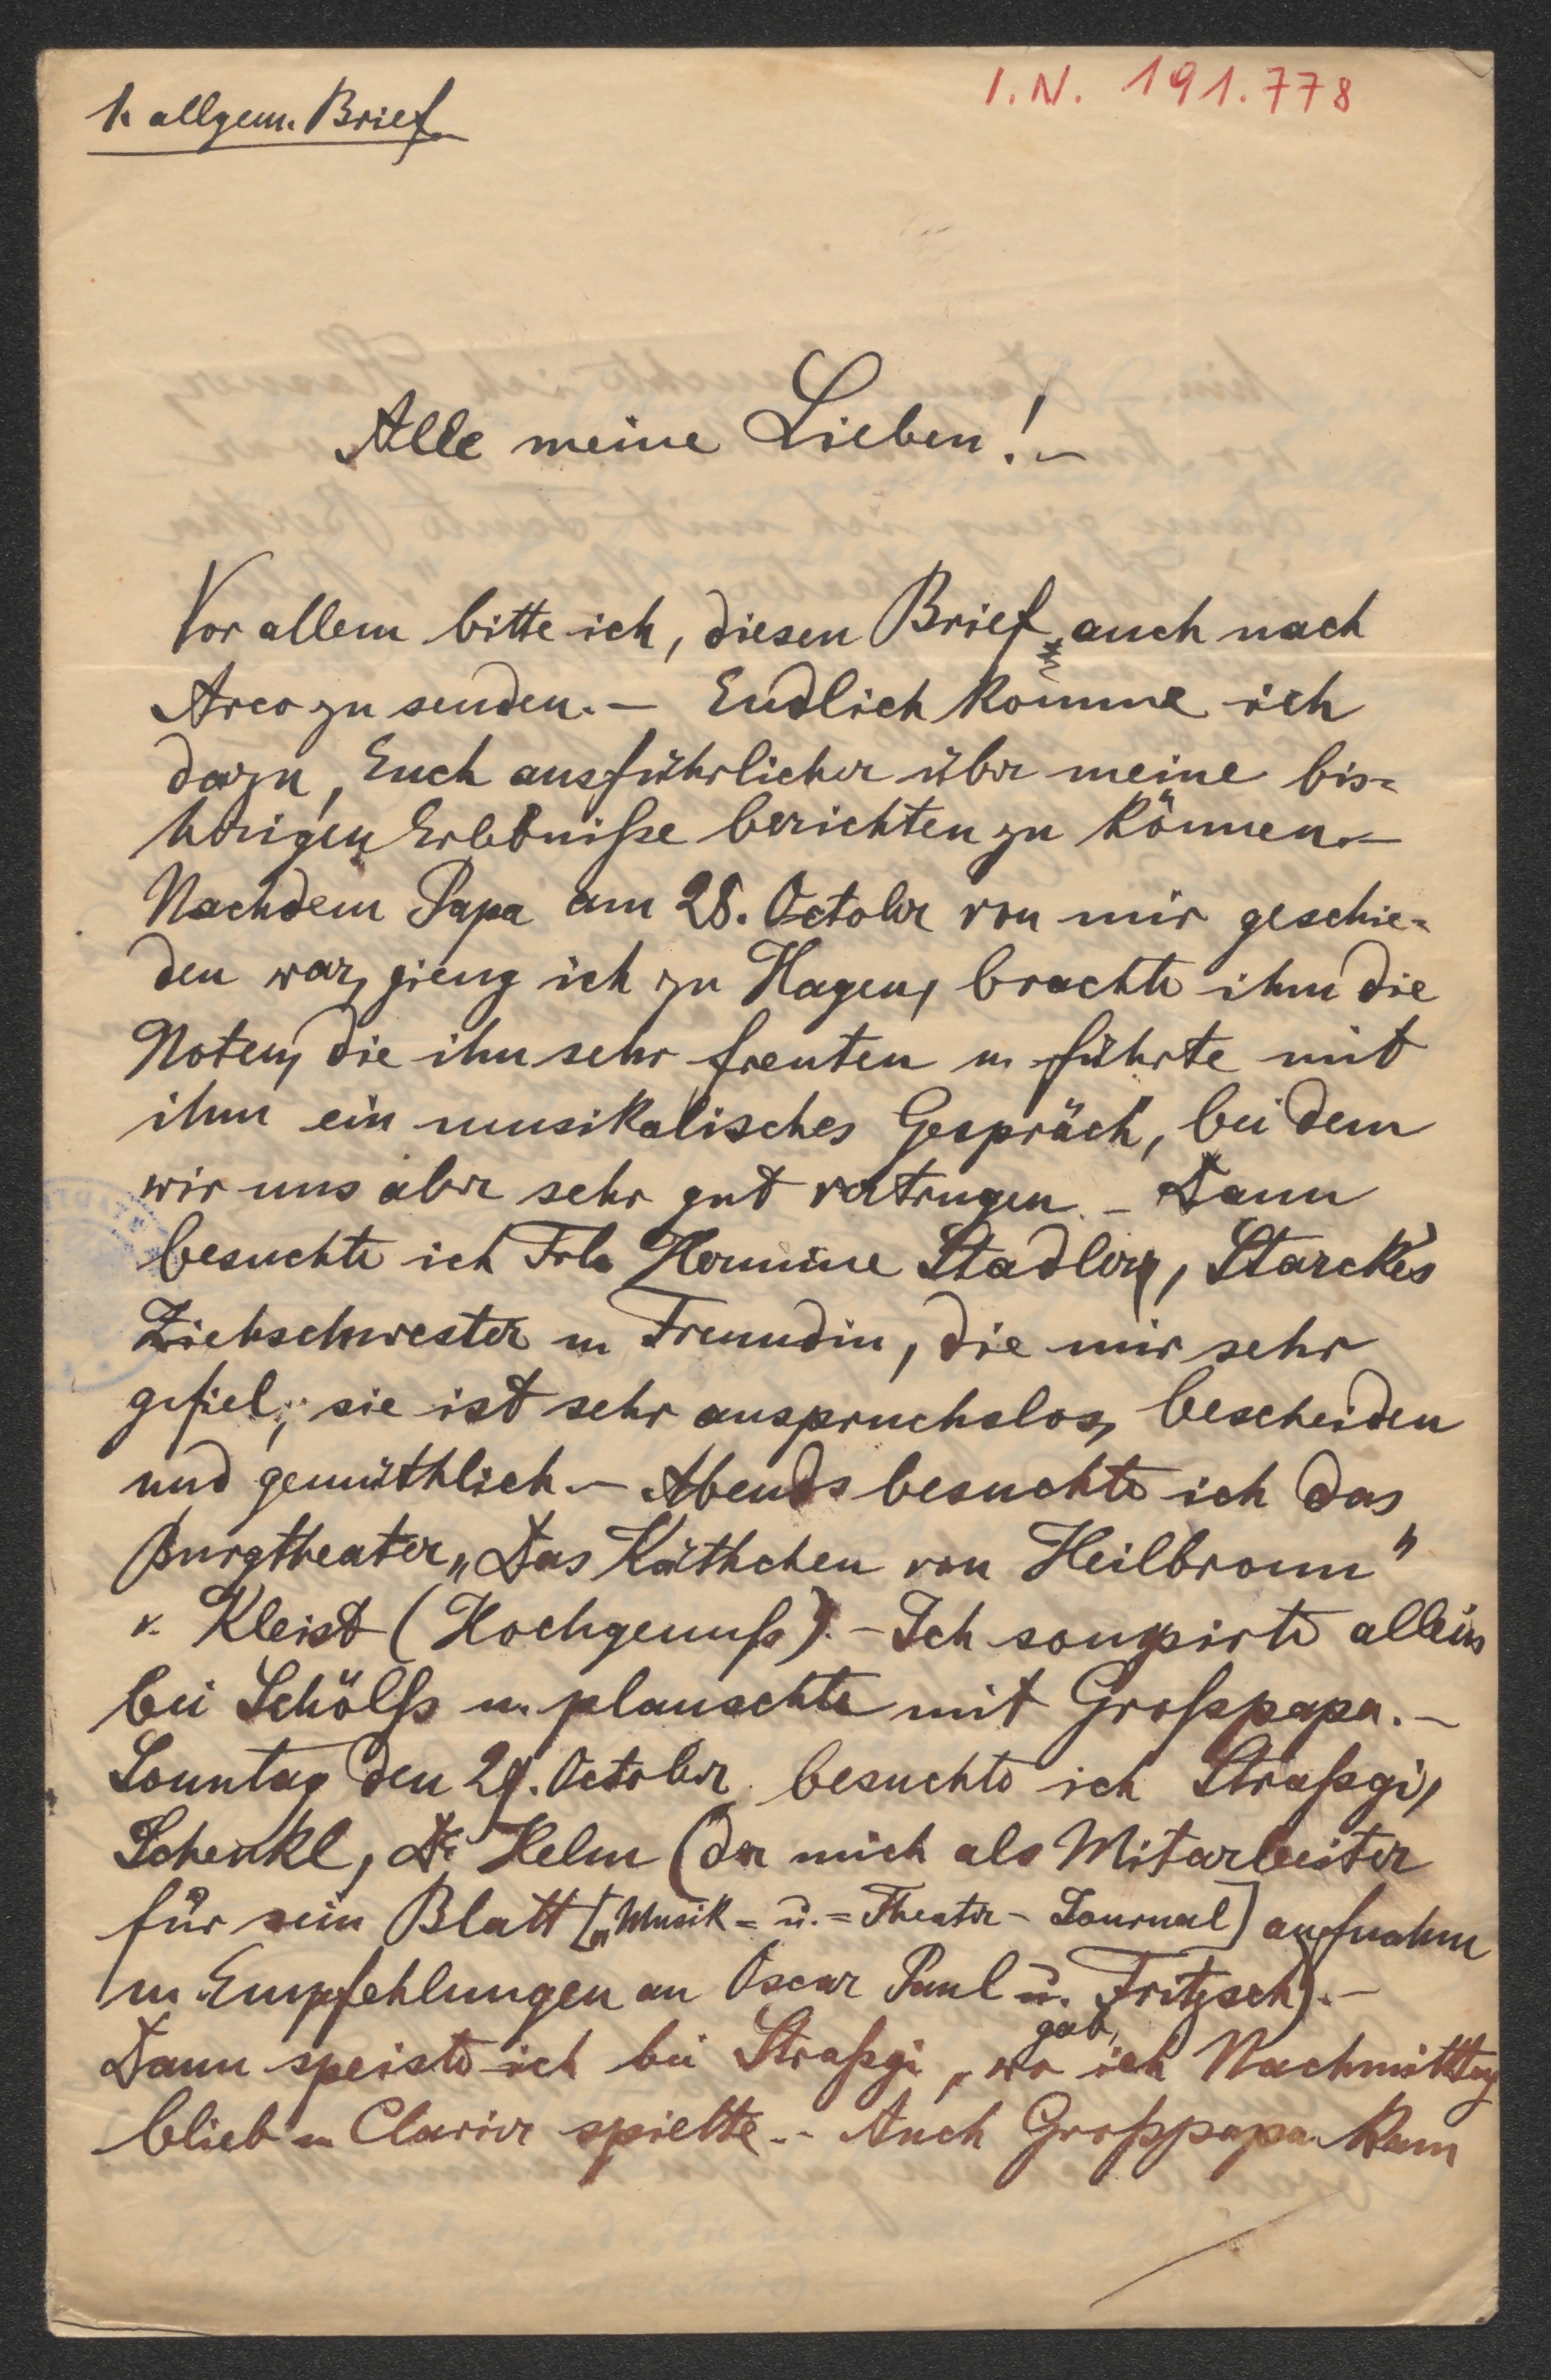 I.N. 191.778
1. allgem. Brief
Alle meine Lieben! –
Vor allem bitte ich, diesen Brief auch nach
Arco zu senden. – Endlich komme ich
dazu, Euch ausführlicher über meine bis=
herigen Erlebniße berichten zu können. –
Nachdem Papa am 28. October von mir geschie=
den war, gieng ich zu Hagen, brachte ihm die
Noten, die ihn sehr freuten u. führte mit
ihm ein musikalisches Gespräch, bei dem
wir uns aber sehr gut vertrugen. – Dann
besuchte ich Frl. Hermine Stadler, Starckes
Ziehschwester u Freundin, die mir sehr
gefiel; sie ist sehr anspruchslos, bescheiden
und gemüthlich. – Abends besuchte ich das
Burgtheater, „Das Käthchen von Heilbronn"
v. Kleist (Hochgenuß). – Ich soupirte allein
bei Schölß u. plauschte mit Großpapa. –
Sonntag den 29. October besuchte ich Straßgi,
Schenkl, Dr. Helm (der mich als Mitarbeiter
für sein Blatt [„Musik= u.=Theater-Journal] aufnahm
u Empfehlungen an Oscar Paul u. Fritzsch). –
gab,
Dann speiste ich bei Straßgi, wo ich Nachmittag
blieb u Clavier spielte. – Auch Großpapa kam